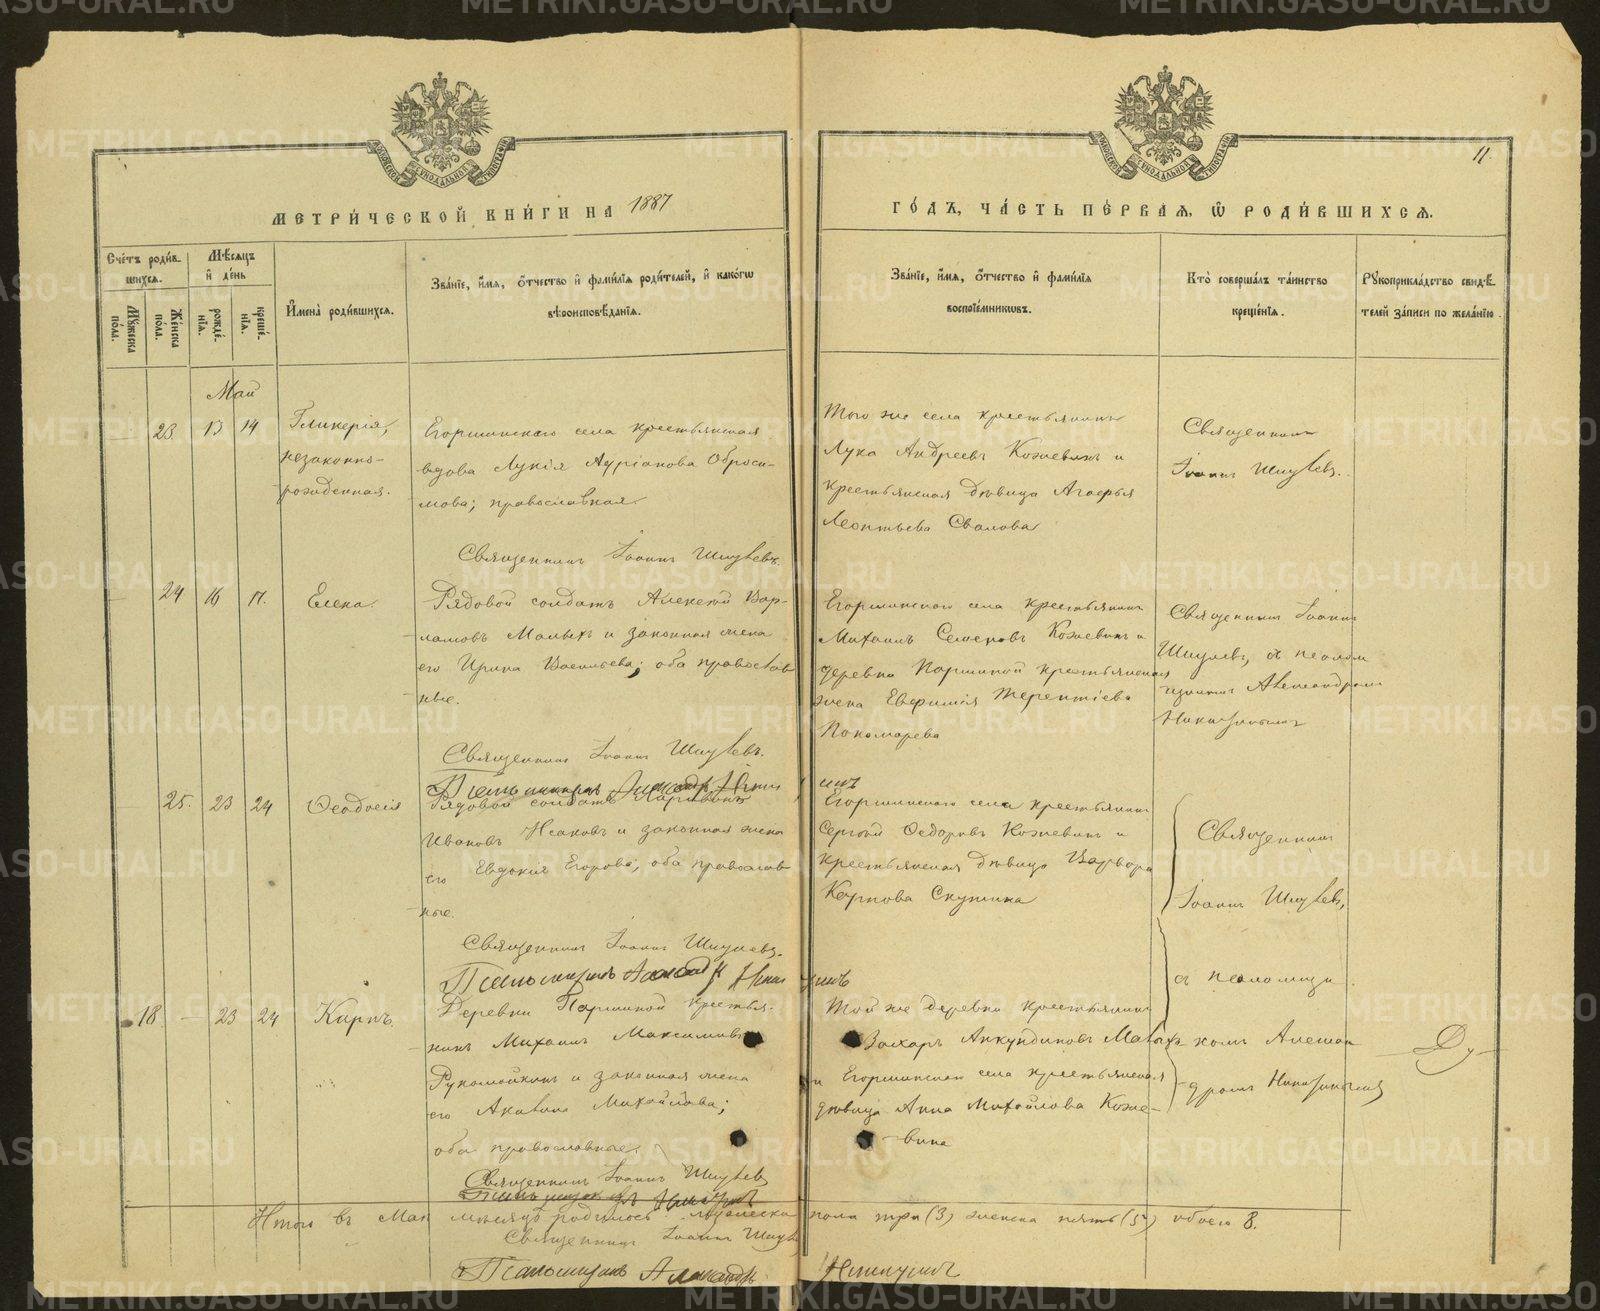 МЕТРИ́ЧЕСКОЙ КНИ́ГИ НА 1887
ГО́ДЪ, ЧА́СТЬ ПЕ́РВАЯ, Ѿ РОДИ́ВШИХСЯ.
11.
Сче́тъ роди́вшихся.
Мѣ́сяцъ и́ де́нь
И́мена̀ роди́вшихся.
Зва́нїе, и́мя, ѻ́тчество и҆ фами́лїя роди́телей, и҆ како́гѡ
вѣроисповѣ́данїя.
Зва́нїе, и́мя, ѻ́тчество и҆ фами́лїя
воспрїе́мникѡвъ.
Кто̀ соверша́лъ та́инство
креще́нїя.
Рꙋкоприкла́дство свидѣ́телей за́писи по жела́нїю.
Мꙋ́жеска по́ла.
Же́нска по́ла.
рожде́нїя.
креще́нїя.
Май
23 13 14
Гликерія,
незаконно-
рожденная.
Егоршинскаго села крестьянская
вдова Лукія Адріанова Оброси-
мова; православная.
Священникъ Іоаннъ
Того же села крестьянинъ
Лука Андреевъ Кожевинъ и
крестьянская дѣвица Агафья
Леонтьева Свалова
Священникъ
Іоаннъ
24 16 17.
Елена.
Рядовой солдатъ Алексѣй Вар-
ламовъ Малыхъ и законная жена
его Ирина Васильева; оба православ-
ные.
Священникъ Іоаннъ
Егоршинскаго села крестьянинъ
Михаилъ Семеновъ Кожевинъ и
деревни Паршиной крестьянская
жена Евфимія Терентіева
Пономарева
Священникъ Іоаннъ
съ псалом
щикомъ Александромъ
25. 23 24
Ѳеодосія
Рядовой солдатъ Ларивонъ
Ивановъ Исаковъ и законная жена
его Евдокія Егорова; оба православ-
ные.
Священникъ Іоаннъ
Псаломщикъ Александръ
Егоршинскаго села крестьянинъ
Сергѣй Ѳедоровъ Кожевинъ и
крестьянская дѣвица Варвара
Карпова Скутина
Священникъ
Іоаннъ
съ псаломщи
комъ Алексан
дромъ
18 23 24
Кирикъ
Деревни Паршиной крестья-
нинъ Михаилъ Максимовъ
Рукомойкинъ и законная жена
его Акилина Михайлова;
оба православные.
Священникъ Іоаннъ
Той же деревни крестьянинъ
Захаръ Анкундиновъ Малыхъ
и Егоршинскаго села крестьянская
дѣвица Анна Михайлова Коже-
вина
Итого въ Маѣ мѣсяцѣ родилось мужеска пола три (3) женска пять (5) обоего 8.
Священникъ Іоаннъ
Псаломщикъ Александръ
METRIKI.GASO-URAL.RU